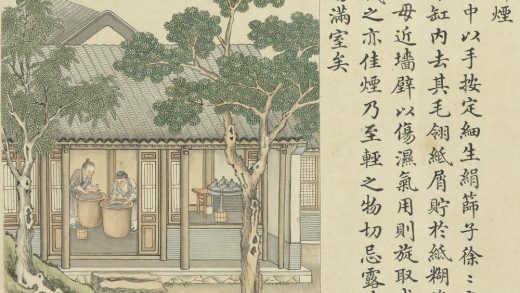 煙
中以手按定細生絹篩子徐〻
缸內去其毛翎紙屑貯於紙糊
毋近墻壁以傷濕氣用則旋取
之亦佳煙乃至輕之物切忌露
滿室矣